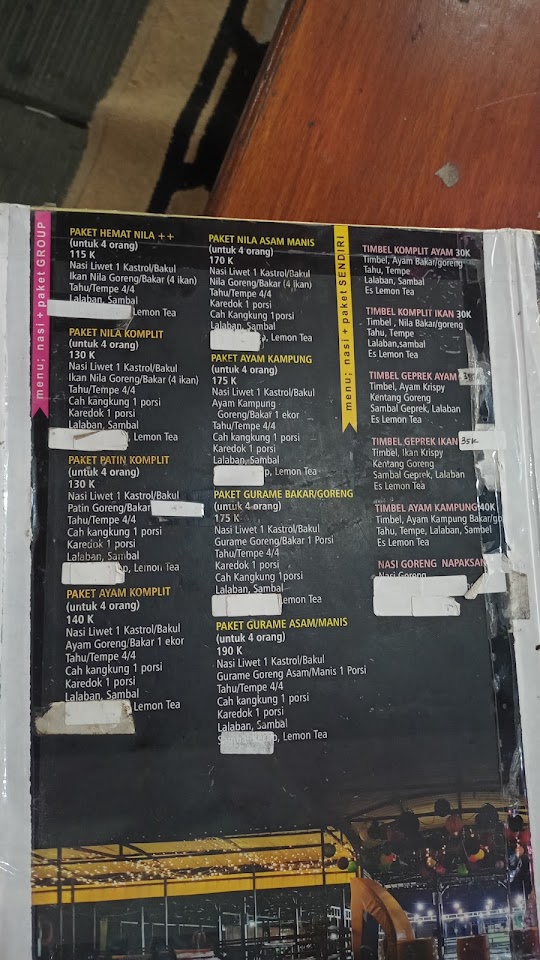 menu; nasi + paket GROUP
PAKET HEMAT NILA ++
(untuk 4 orang)
115 K
Nasi Liwet 1 Kastrol/Bakul
Ikan Nila Goreng/Bakar (4 ikan)
Tahu/Tempe 4/4
Lalaban, Sambal
Lemon Tea
PAKET NILA KOMPLIT
(untuk 4 orang)
130 K
Nasi Liwet 1 Kastrol/Bakul
Ikan Nila Goreng/Bakar (4 ikan)
Tahu/Tempe 4/4
Cah kangkung 1 porsi
Karedok 1 porsi
Lalaban, Sambal
, Lemon Tea
PAKET PATIN KOMPLIT
(untuk 4 orang)
130 K
Nasi Liwet 1 Kastrol/Bakul
Patin Goreng/Bakar
Tahu/Tempe 4/4
Cah kangkung 1 porsi
Karedok 1 porsi
Lalaban, Sambal
, Lemon Tea
PAKET AYAM KOMPLIT
(untuk 4 orang)
140 K
Nasi Liwet 1 Kastrol/Bakul
Ayam Goreng/Bakar 1 ekor
Tahu/Tempe 4/4
Cah kangkung 1 porsi
Karedok 1 porsi
Lalaban, Sambal
, Lemon Tea
PAKET NILA ASAM MANIS
(untuk 4 orang)
170 K
Nasi Liwet 1 Kastrol/Bakul
Nila Goreng/Bakar (4 ikan)
Tahu/Tempe 4/4
Karedok 1 porsi
Cah Kangkung 1porsi
Lalaban, Sambal
, Lemon Tea
PAKET AYAM KAMPUNG
(untuk 4 orang)
175 K
Nasi Liwet 1 Kastrol/Bakul
Ayam Kampung
Goreng/Bakar 1 ekor
Tahu/Tempe 4/4
Cah kangkung 1 porsi
Karedok 1 porsi
Lalaban, Sambal
, Lemon Tea
PAKET GURAME BAKAR/GORENG
(untuk 4 orang)
175 K
Nasi Liwet 1 Kastrol/Bakul
Gurame Goreng/Bakar 1 Porsi
Tahu/Tempe 4/4
Karedok 1 porsi
Cah Kangkung 1porsi
Lalaban, Sambal
Lemon Tea
PAKET GURAME ASAM/MANIS
(untuk 4 orang)
190 K
Nasi Liwet 1 Kastrol/Bakul
Gurame Goreng Asam/Manis 1 Porsi
Tahu/Tempe 4/4
Cah kangkung 1 porsi
Karedok 1 porsi
Lalaban, Sambal
, Lemon Tea
menu; nasi + paket SENDIRI
TIMBEL KOMPLIT AYAM 30K
Timbel, Ayam Bakar/goreng
Tahu, Tempe
Lalaban, Sambal
Es Lemon Tea
TIMBEL KOMPLIT IKAN 30K
Timbel , Nila Bakar/goreng
Tahu, Tempe
Lalaban,sambal
Es Lemon Tea
TIMBEL GEPREK AYAM
Timbel, Ayam Krispy
Kentang Goreng
Sambal Geprek, Lalaban
Es Lemon Tea
TIMBEL GEPREK IKAN 35K
Timbel, Ikan Krispy
Kentang Goreng
Sambal Geprek, Lalaban
Es Lemon Tea
TIMBEL AYAM KAMPUNG 40K
Timbel, Ayam Kampung Bakar/go
Tahu, Tempe, Lalaban, Sambal
Es Lemon Tea
NASI GORENG NAPAKSAN
Nasi Goreng